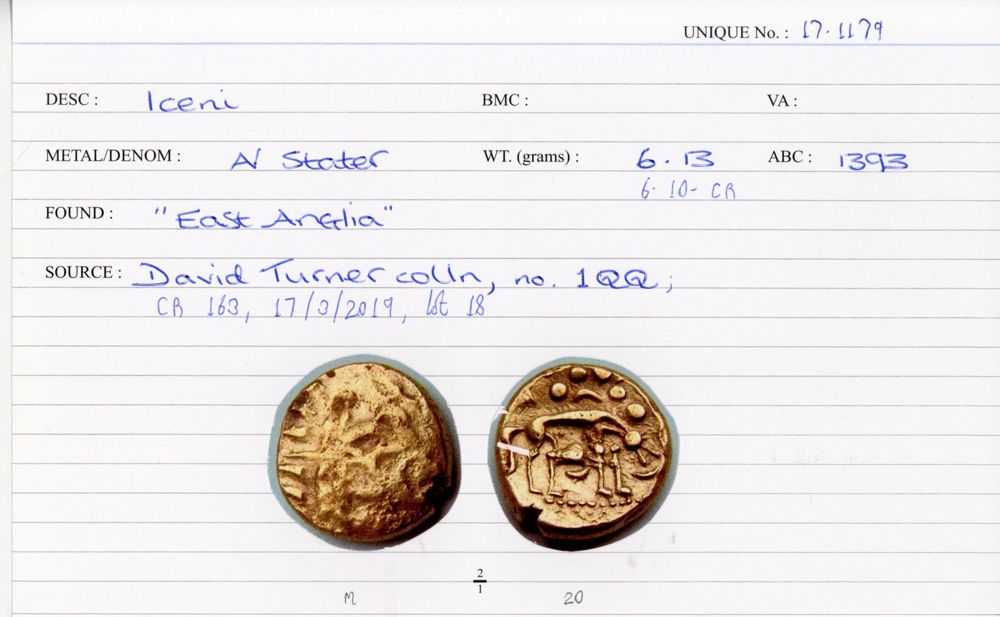 UNIQUE No. : 17.1179
DESC : Iceni BMC : VA :
METAL/DENOM : AV Stater WT. (grams) : 6.13 ABC : 1393
6.10- CR
FOUND : "East Anglia"
SOURCE : David Turner colln, no. 1QQ;
CR 163, 17/3/2019, lot 18
2
1
M 20